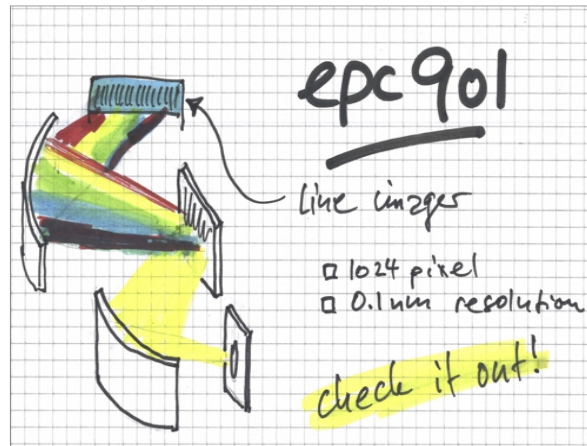 epc901
line imager
1024 pixel
0.1nm resolution
check it out!